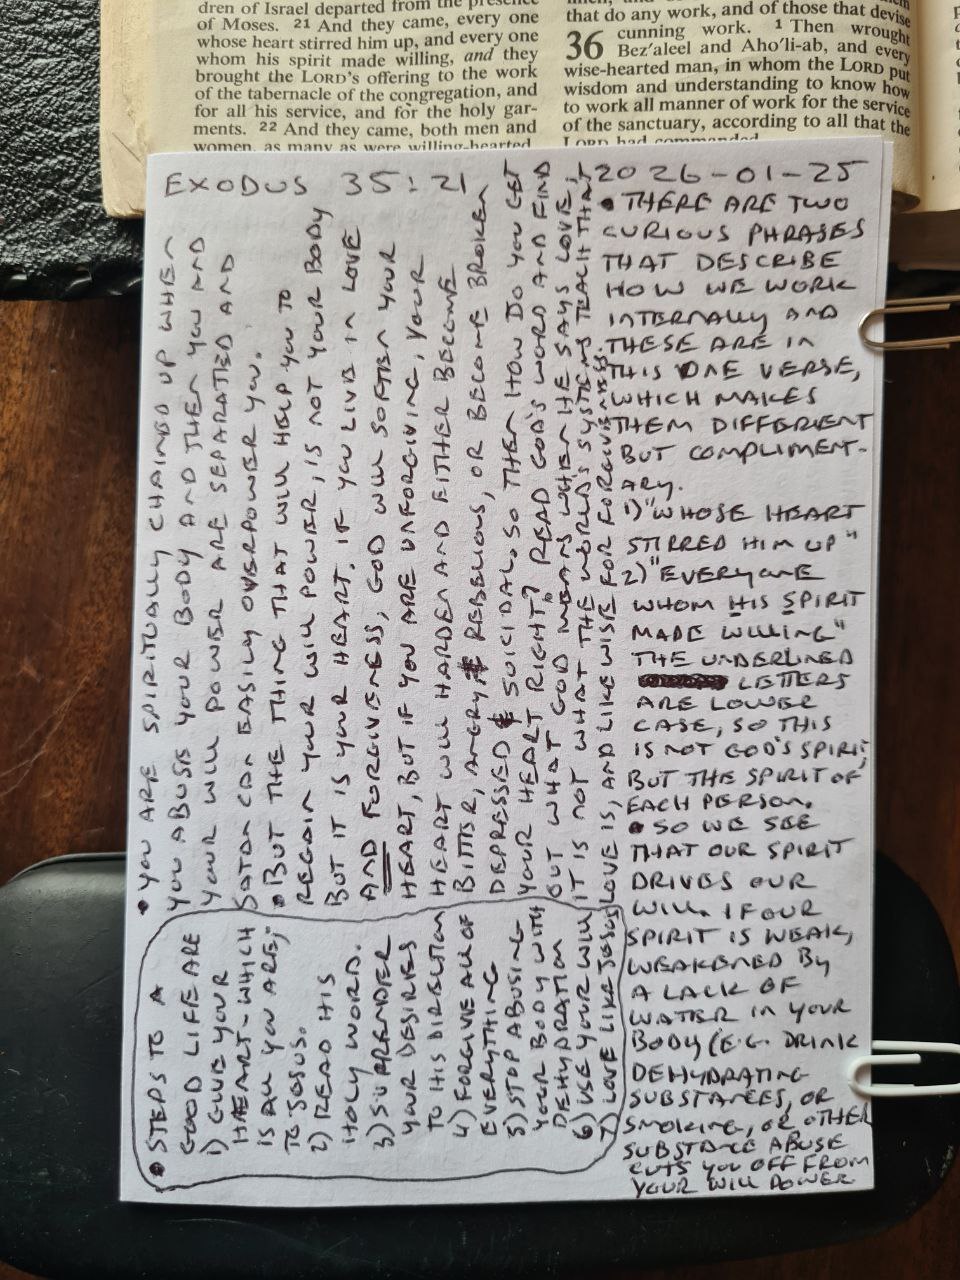 dren of Israel departed from the presence
of Moses. 21 And they came, every one
whose heart stirred him up, and every one
whom his spirit made willing, and they
brought the LORD'S offering to the work
of the tabernacle of the congregation, and
for all his service, and for the holy gar-
ments. 22 And they came, both men and
women, as many as were willing-hearted
that do any work, and of those that devise
cunning work. 1 Then wrought
36 Bez'aleel and Aho'li-ab, and every
wise-hearted man, in whom the LORD put
wisdom and understanding to know how
to work all manner of work for the service
of the sanctuary, according to all that the
LORD had commanded
EXODUS 35:21
2026-01-25
• THERE ARE TWO
CURIOUS PHRASES
THAT DESCRIBE
HOW WE WORK
INTERNALLY AND
THESE ARE IN
THIS ONE VERSE,
WHICH MAKES
THEM DIFFERENT
BUT COMPLIMENT-
ARY.
1) "WHOSE HEART
STIRRED HIM UP"
2) "EVERYONE
WHOM HIS SPIRIT
MADE WILLING"
THE UNDERLINED
LETTERS
ARE LOWER
CASE, SO THIS
IS NOT GOD'S SPIRIT,
BUT THE SPIRIT OF
EACH PERSON.
• SO WE SEE
THAT OUR SPIRIT
DRIVES OUR
WILL. IF OUR
SPIRIT IS WEAK,
WEAKENED BY
A LACK OF
WATER IN YOUR
BODY (E.G. DRINK
DEHYDRATING
SUBSTANCES, OR
SMOKING, OR OTHER
SUBSTANCE ABUSE
CUTS YOU OFF FROM
YOUR WILL POWER
• YOU ARE SPIRITUALLY CHAINED UP WHEN
YOU ABUSE YOUR BODY AND THEN YOU AND
YOUR WILL POWER ARE SEPARATED AND
SATAN CAN EASILY OVERPOWER YOU.
• BUT THE THING THAT WILL HELP YOU TO
REGAIN YOUR WILL POWER, IS NOT YOUR BODY
BUT IT IS YOUR HEART. IF YOU LIVE IN LOVE
AND FORGIVENESS, GOD WILL SOFTEN YOUR
HEART, BUT IF YOU ARE UNFORGIVING, YOUR
HEART WILL HARDEN AND EITHER BECOME
BITTER, ANGRY, REBELIOUS, OR BECOME BROKEN
DEPRESSED & SUICIDAL. SO THEN HOW DO YOU GET
YOUR HEART RIGHT? READ GOD'S WORD AND FIND
OUT WHAT GOD MEANS WHEN HE SAYS LOVE,
IT IS NOT WHAT THE WORLD'S SYSTEMS TEACH THAT
LOVE IS, AND LIKEWISE FOR FORGIVENESS.
• STEPS TO A
GOOD LIFE ARE
1) GIVE YOUR
HAERT - WHICH
IS ALL YOU ARE,
TO JOSUS.
2) READ HIS
HOLY WORD.
3) SURRENDER
YOUR DESIRES
TO HIS DIRECTION
4) FORGIVE ALL OF
EVERYTHING
5) STOP ABUSING
YOUR BODY WITH
DEHYDRATION
6) USE YOUR WILL
7) LOVE LIKE JOSUS